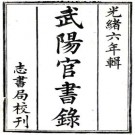 光緒六年輯
武陽官書錄
志書局校刊